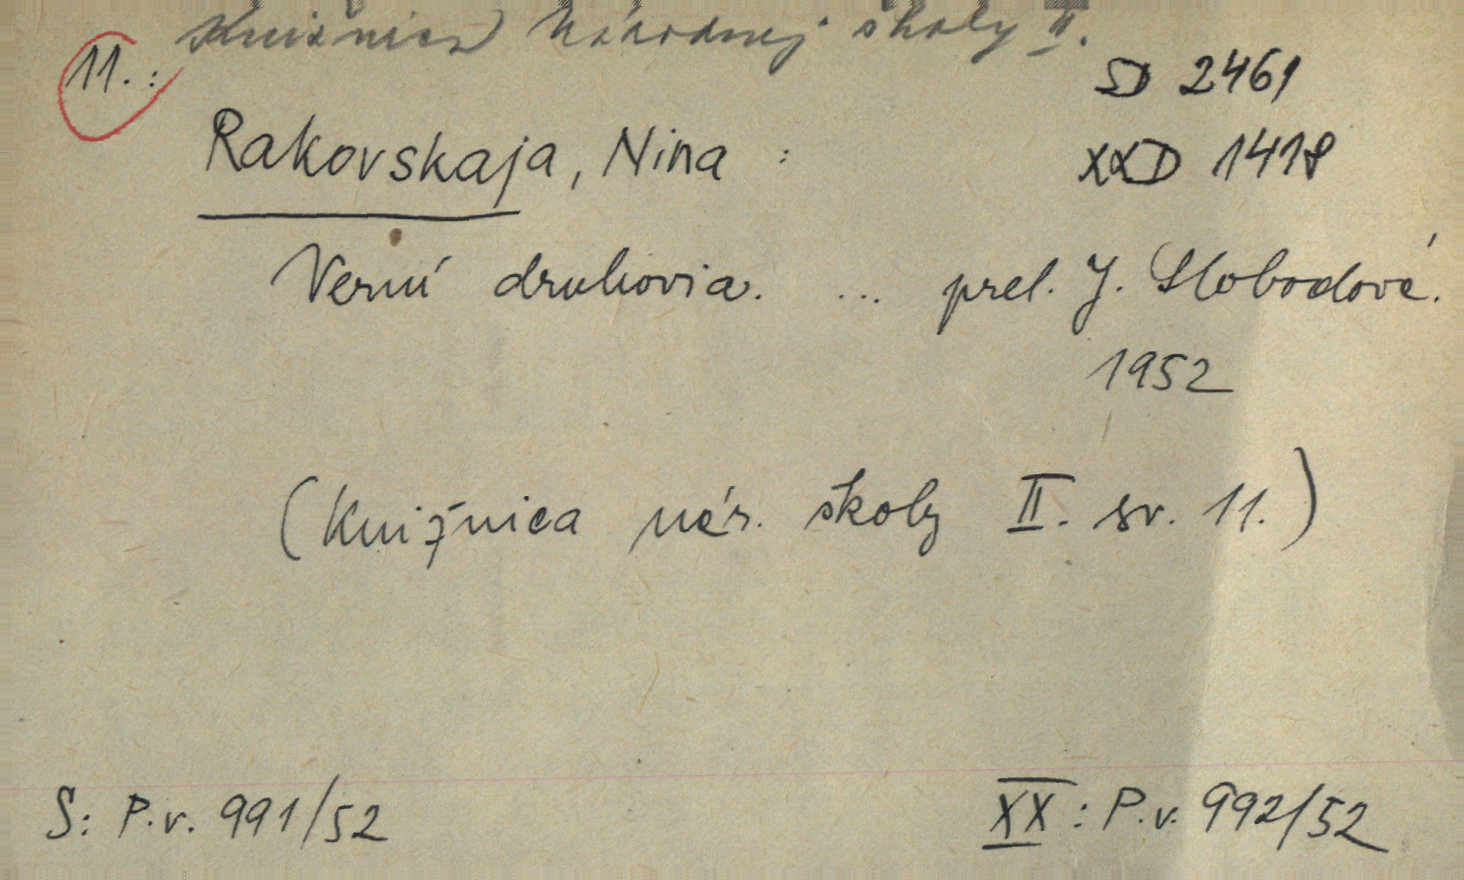 Knižnica Národnej školy II.
11.:
SD 2461
Rakovskaja, Nina :
XXD 1418
Verní druhovia. ... prel. J. Slobodová.
1952
(Knižnica nár. školy II. sv. 11.)
S: P.v. 991/52
XX: P.v. 992/52